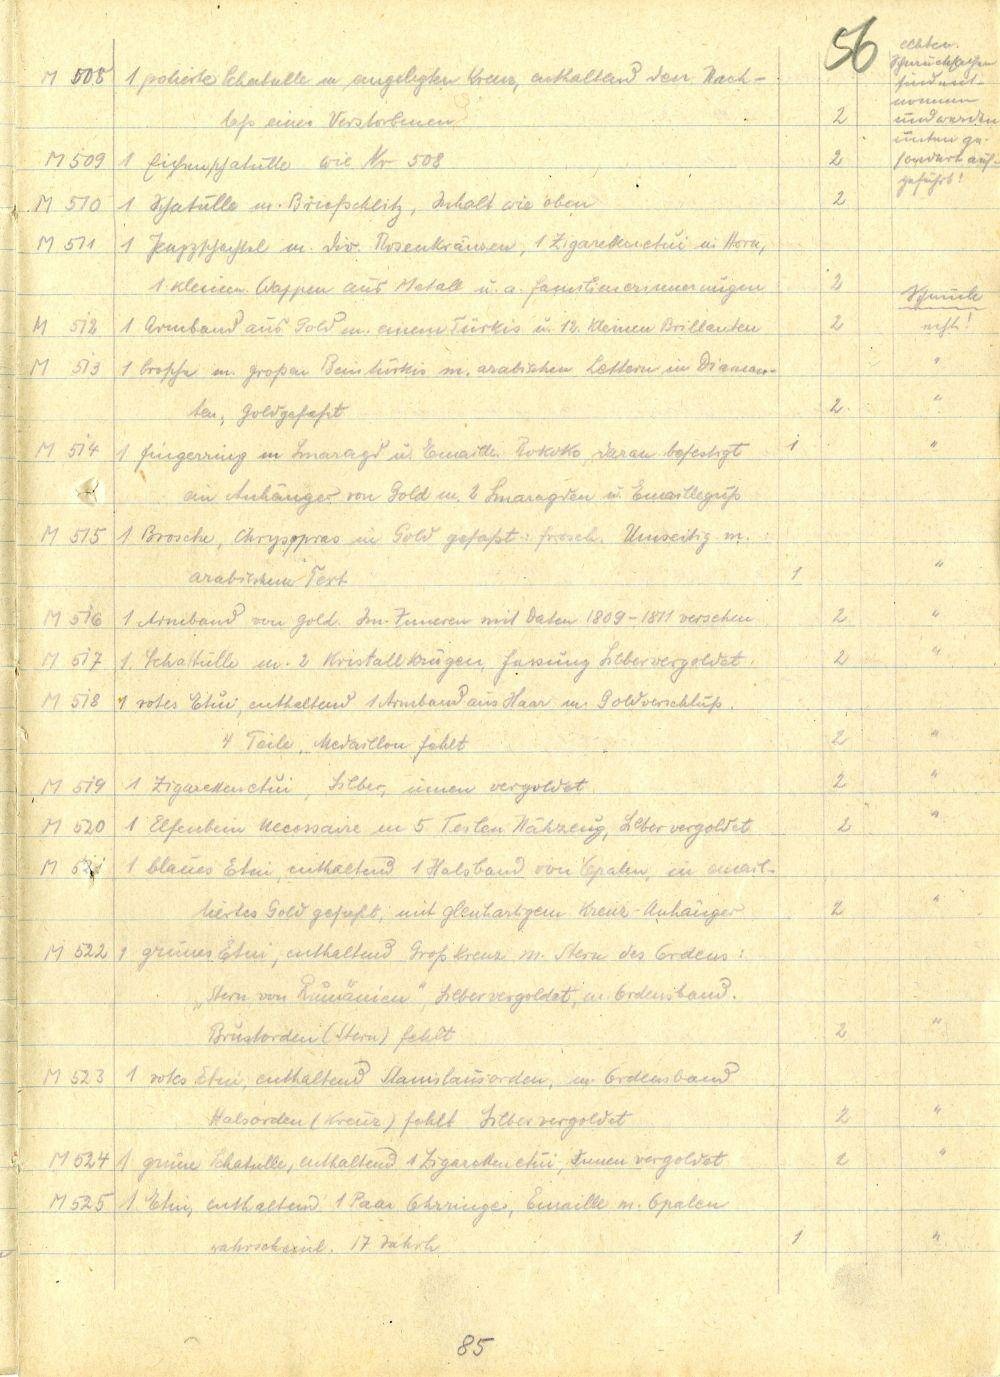 56
echten.
Schmucksachen
sind ent-
nommen
und werden
unten ge-
sondert auf-
geführt!
M 508 1 polierte Schatulle m eingelegten Kreuz, enthaltend den Nach-
laß eines Verstorbenen 2
M 509 1 Eichenschatulle wie Nr 508 2
M 510 1 Schatulle m. Briefschlitz, Inhalt wie oben 2
M 511 1 m. div. Rosenkränzen, 1 Zigarettenetui in Horn,
1 kleinem Wappen aus Metall u. a. Familienerinnerungen 2
Schmuck
M 512 1 Armband aus Gold m. einem Türkis u. 12. kleinen Brillanten 2 echt!
M 513 1 Brosche m. großen Beintürkis m. arabischen Lettern in Diaman- "
ten, Goldgefaßt 2. "
M 514 1 Fingerring m Smaragd u. Emaille Rokoko, daran befestigt 1 "
ein Anhänger von Gold m. 2 Smaragden u. Emailleguß
M 515 1 Brosche, Chrysopras in Gold gefaßt: Frosch. Umseitig m.
arabischem Text 1 "
M 516 1 Armband von Gold. Im Inneren mit Daten 1809-1811 versehen 2 "
M 517 1. Schatulle m. 2 Kristallkrügen, Fassung Silbervergoldet. 2 "
M 518 1 rotes Etui, enthaltend 1 Armband aus Haar m. Goldverschluß.
4 Teile, Medaillon fehlt 2 "
M 519 1 Zigarettenetui, Silber, innen vergoldet 2 "
M 520 1 Elfenbein Necessaire m 5 Teilen Nähzeug, Silber vergoldet 2 "
M 521 1 blaues Etui, enthaltend 1 Halsband von Opalen, in email-
liertes Gold gefaßt, mit gleichartigem Kreuz-Anhänger 2 "
M 522 1 grünes Etui, enthaltend Großkreuz m. Stern des Ordens:
„Stern von Rumänien“, Silbervergoldet, m. Ordensband.
Brustorden (Stern) fehlt 2 "
M 523 1 rotes Etui, enthaltend Stanislausorden, m. Ordensband
Halsorden (Kreuz) fehlt Silbervergoldet 2 "
M 524 1 grüne Schatulle, enthaltend 1 Zigarettenetui, Innen vergoldet 2 "
M 525 1 Etui, enthaltend 1 Paar Ohrringe, Emaille m. Opalen
wahrscheinl. 17 Jahrh 1 "
85